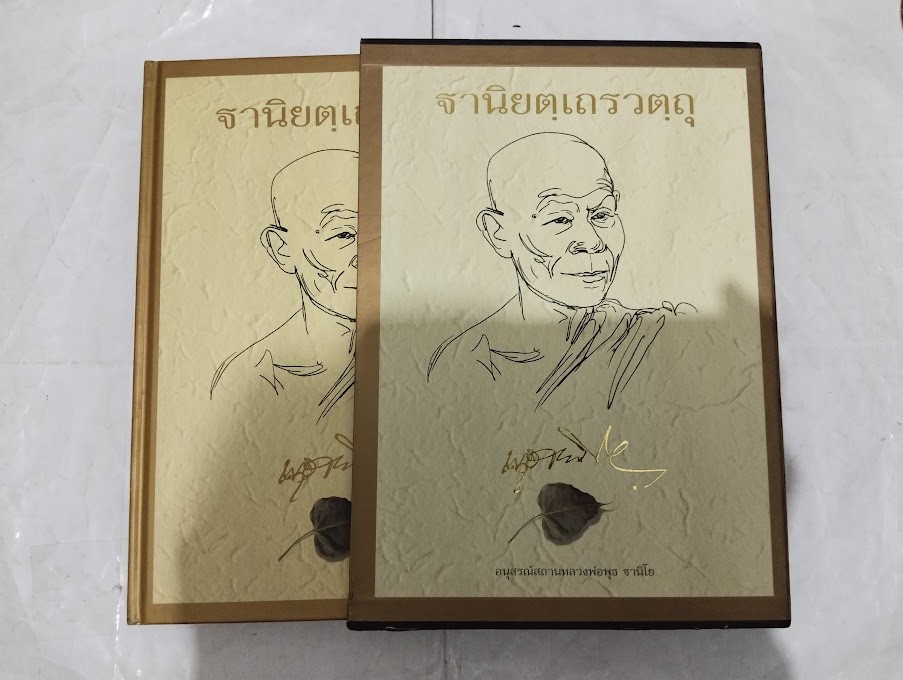 ฐานิยตฺเถ
ฐานิยตฺเถรวตฺถุ
อนุสรณ์สถานหลวงพ่อพุธ ฐานิโย